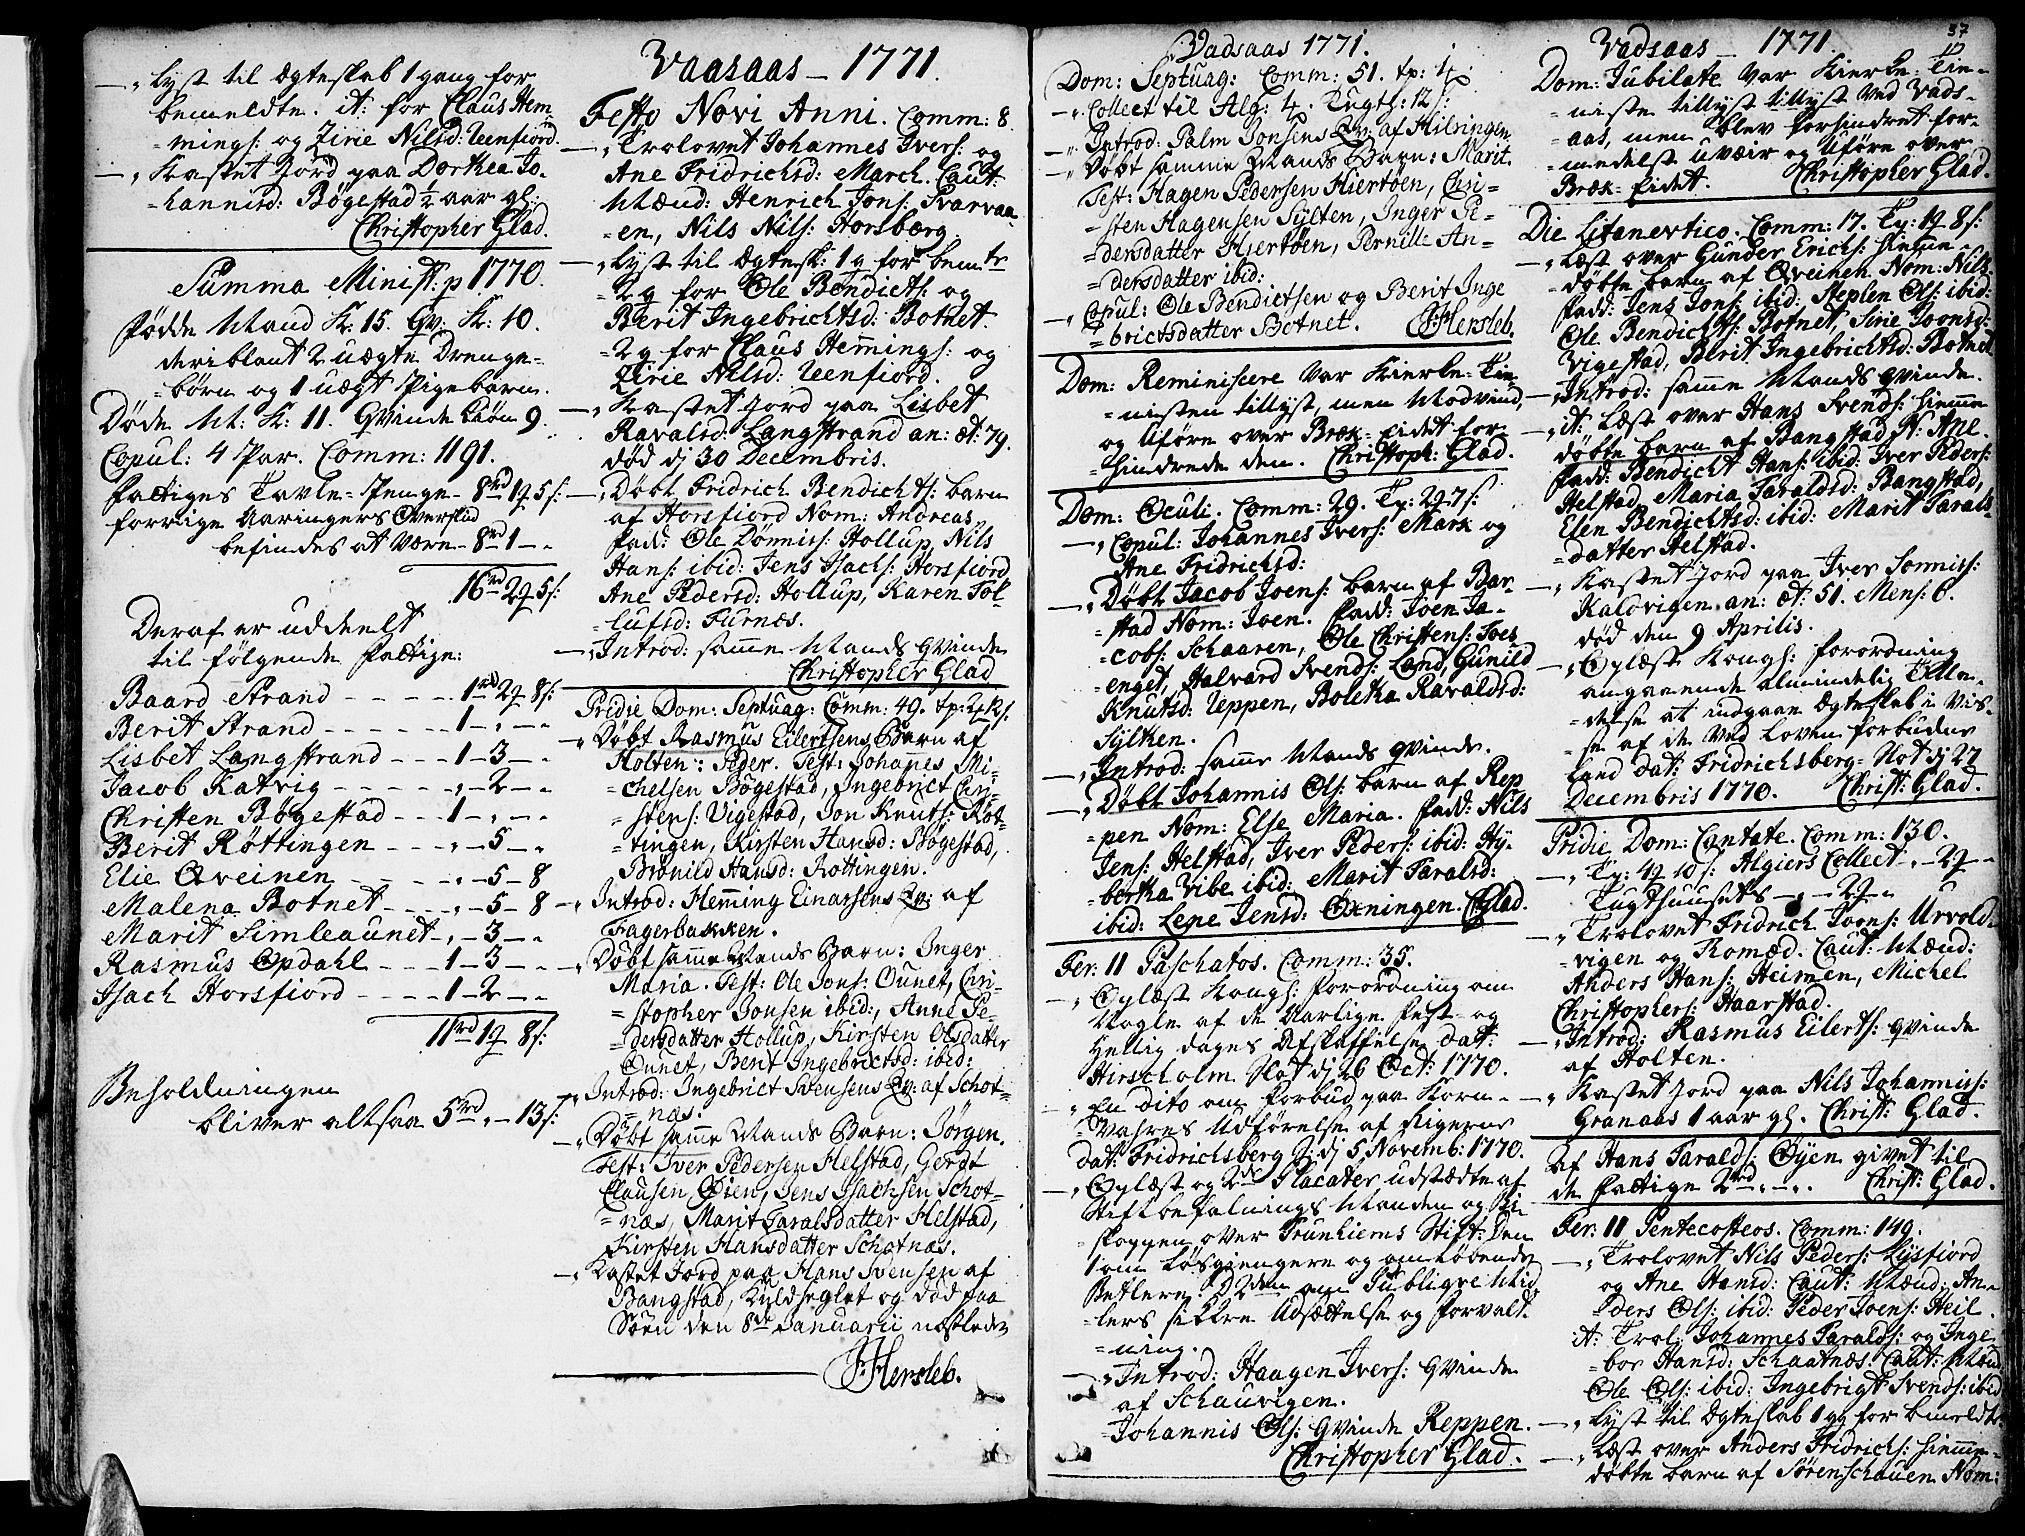 -„ Lyst til Ægteskab 1 gang for
bemeldte. it: for Claus Hem-
=mings: og Zirie Nilsd: Ueenfiord.
-„ Kastet Jord paa Dorthea Jo-
=hannisd: Bögestad ½ aar gl:
Christopher Glad.
Summa Minist. p 1770.
Födde Mand K: 15. Qv: K: 10.
deriblant 2 uægte Drenge-
=börn og 1 uægt Pigebarn.
Döde M: K: 11. Qvinde Kiön 9.
Copul: 4 Par. Comm: 1191.
Fattiges Tavle=Penge- 8rd 1q 5s:
forrige Aaringers Overskud
befindes at være- 8rd 1 - „
16rd 2q 5s:
Deraf er uddeelt
til følgende Fattige:
Baard Strand - - - - - 1rd 2q 8s:
Berit Strand - - - - - - 1 - „ - „
Lisbet Langstrand - - - 1 - 3 - „
Jacob Katvig - - - - - „ - 2 - „
Christen Bögestad - - - 1 - „ - „
Berit Röttingen - - - „ - 5 - „
Elie Qveinen - - - - - „ - 5 - 8
Malena Botnet - - - - „ - 5 - 8
Marit Simleaunet - „ - 3 - „
Rasmus Opdahl - - - 1 - 3 - „
Isach Horsfiord - - - - 1 - 2 - „
11rd 1q 8s:
Beholdningen
bliver altsaa 5rd „ - 13s:
Vaasaas - 1771.
Festo Novi Anni. Comm: 8.
-„ Trolovet Johannes Ivers: og
Ane Fridrichsd: March. Caut:
Mænd: Henrich Jons: Svarvaa-
=en, Nils Nils: Horsberg.
-„ Lyst til Ægtesk: 1 g for bemte
=2 g for Ole Bendicts: og
Berit Ingebrichtsd: Botnet.
=2 g for Claus Hemings: og
Zirie Nilsd: Ueenfiord.
-„ Kastet Jord paa Lisbet
Ravalsd: Langstrand an: æt: 79.
död dj 30 Decembris.
-„ Döbt Fridrich Bendichts: barn
af Horsfiord Nom: Andreas.
Fadd: Ole Dönnis: Hollup, Nils
Hans: ibid: Jens Isachs: Horsfiord
Ane Pedersd: Hollup, Karen Tol-
=lufsd: Furnæs.
-„ Introd: samme Mands Qvinde
Christopher Glad
Pridie Dom: Septuag: Comm: 49. tp: 2q 12s.
-„ Döbt Rasmus Eilertsens Barn af
Holten: Peder. Test: Johanes Mi-
=chelsen Bögestad, Ingebrict Chri-
=stens: Vigestad, Jon Knuts: Röt-
=tingen, Kirsten Hansd: Bögestad,
Brönild Hansd: Rottingen.
-„ Introd: Hemming Einarsens Qv: af
Fagerbakken.
-„ Döbt samme Mands Barn: Inger
Maria. Test: Ole Jons: Ounet, Chri-
=stopher Jonsen ibid:, Anne Pe-
=dersdatter Hollup, Kirsten Olsdatter
Ounet, Berit Ingebrictsd: ibid:
-„ Introd: Ingebrict Svensens Qv: af Schot-
=næs.
-„ Döbt samme Mands Barn: Jörgen.
Test: Iver Pedersen Helstad, Gerdt
Clausen Öien, Jens Isachsen Schot-
=næs, Marit Taralsdatter Helstad,
Kirsten Hansdatter Schotnæs.
-„ Kastet Jord paa Hans Svensen af
Bangstad, Kuldseglet og död paa
Söen den 8de Januarii næstleden
J Hersleb.
Vadsaas 1771.
Dom: Septuag: Comm: 51. tp:
-„ Collect til Alg: 4. Tugth: 12 s:
-„ Introd: Palm Jonsens Qv: af Hilringen
-„ Döbt samme Mands Barn: Marit.
Test: Hagen Pedersen Hiertöen, Chri-
=sten Hagensen Sylten, Inger Pe-
=dersdatter Hiertöen, Pernille An-
=dersdatter ibid:
-„ Copul: Ole Bendictsen og Berit Inge
=brictsdatter Botnet. J Hersleb.
Dom: Reminiscere var Kierke-Tie-
=nisten tillyst, men Modvind,
og Uföre over Bræk-Eidet for-
=hindrede den. Christoph: Glad.
Dom: Oculi. Comm: 29. Tp: 2q 7s:
-„ Copul: Johannes Ivers: Mark og
Ane Fridrichsd:
-„ Döbt Jacob Joens: barn af Bar-
=stad Nom: Joen. Fadd: Joen Ja-
=cobs: Schaaren, Ole Christens: Joes
=enget, Halvard Svends: Land, Gunild
Knutsd: Ueppen, Boletha Ravaldsd:
Sylten.
-„ Introd: samme Mands Qvinde.
-„ Döbt Johannis Ols: barn af Rep
=pen Nom: Else Maria. Fadd: Nils
Jens: Helstad, Iver Peders: ibid: Hy-
=bertha Vibe ibid: Marit Taralsd:
ibid: Lene Jensd: Öxningen. C Glad.
Fer: II Paschatos. Comm: 35.
-„ Oplæst Kongl: Forordning om
Nogle af de Aarlige Fest- og
Hellig dages Afskaffelse dat:
Hirscholm Slot dj 26 Oct: 1770.
-„ En dito om Forbud paa Korn-
=Vahres Udförelse af Rigerne
dat: Fridrichsberg S: dj 5 Novemb: 1770.
-„ Oplæst og 2de Placater udstædte af
Stiftbefalnings Manden og Bi-
=skoppen over Trunhiems Stift: Den
1 om Lösgiengere og omlöbende
Betlere. D 2den om Publiqve Mid
=lers sikkre Udsættelse og Forvalt-
=ning.
-„ Introd: Haagen Ivers: Qvinde
af Schauvigen.
Johannis Ols: Qvinde Reppen.
Christopher Glad.
37
Vadsaas - 1771.
Dom: Jubilate var Kierke-Tie-
=niste tillyst tillyst ved Vads-
=aas, men blev forhindret for-
=medelst uveir og Uföre over
Bræk-Eidet. Christopher Glad.
Die Litanevtico. Comm: 17. Tp: 1q 8s:
-„ Læst over Gunder Erichs: hieme-
=döbte barn af Qveinen. Nom: Nils.
Fadd: Jens Jons: ibid: Steplen Ols: ibid:
Ole Bendichts: Botnet, Sirie Joonsd:
Vigestad, Berit Ingebrichtsd: Botnet
-„ Introd: samme Mands Qvinde.
-„ it: Læst over Hans Svends: hieme
döbte barn af Bangstad N: Ane.
Fadd: Bendicht Hans: ibid: Iver Peders:
Helstad, Maria Taraldsd: Bangstad,
Elen Bendichtsd: ibid: Marit Tarals-
=datter Helstad.
-„ Kastet Jord paa Iver Sonnis:
Kalvvigen. an: æt: 51. Mens: 6.
död den 9 Aprilis.
-„ Oplæst Kongl: Forordning
angaaende almindelig Tilla-
=delse at indgaae Ægteskab i vis-
=se af de ved Loven forbudne
Leed dat: Fridrichsberg-Slot dj 27
Decembris 1770. Christ: Glad.
Pridie Dom: Cantate. Comm: 130.
-„ Tp: 4q 10s: Algiers Collect. „ - 2q - „
Tugthuusets - „ - 2q - „
-„ Trolovet Fridrich Joons: Urvold-
=vigen og Romæd. Caut: Mænd:
Anders Hans: Heimen, Michel
Christophers: Haarstad.
-„ Introd: Rasmus Eilerts: Qvinde
af Holten.
-„ Kastet Jord paa Nils Johannis:
Granaas 1 aar gl. Christ: Glad.
Af Hans Taralds: Öyen givet til
de Fattige 2rd „ - „. Christ: Glad.
Fer: II Pentecosteos. Comm: 149.
-„ Trolovet Nils Peders: Lysfiord
og Ane Hansd: Caut: Mænd: An-
=ders Ols: ibid: Peder Joens: Heil.
it: Trol: Johannes Taralds: og Inge
=bor Hansd: Schaatnæs. Caut: Mænd
Ole Ols: ibid: Ingebrigt Svends: ibid
-„ Lyst til Ægteskab 1 gg for bmeldte
-„ Læst over Anders Fridrichs: hieme-
=döbte barn af Sörenschauen Nom: